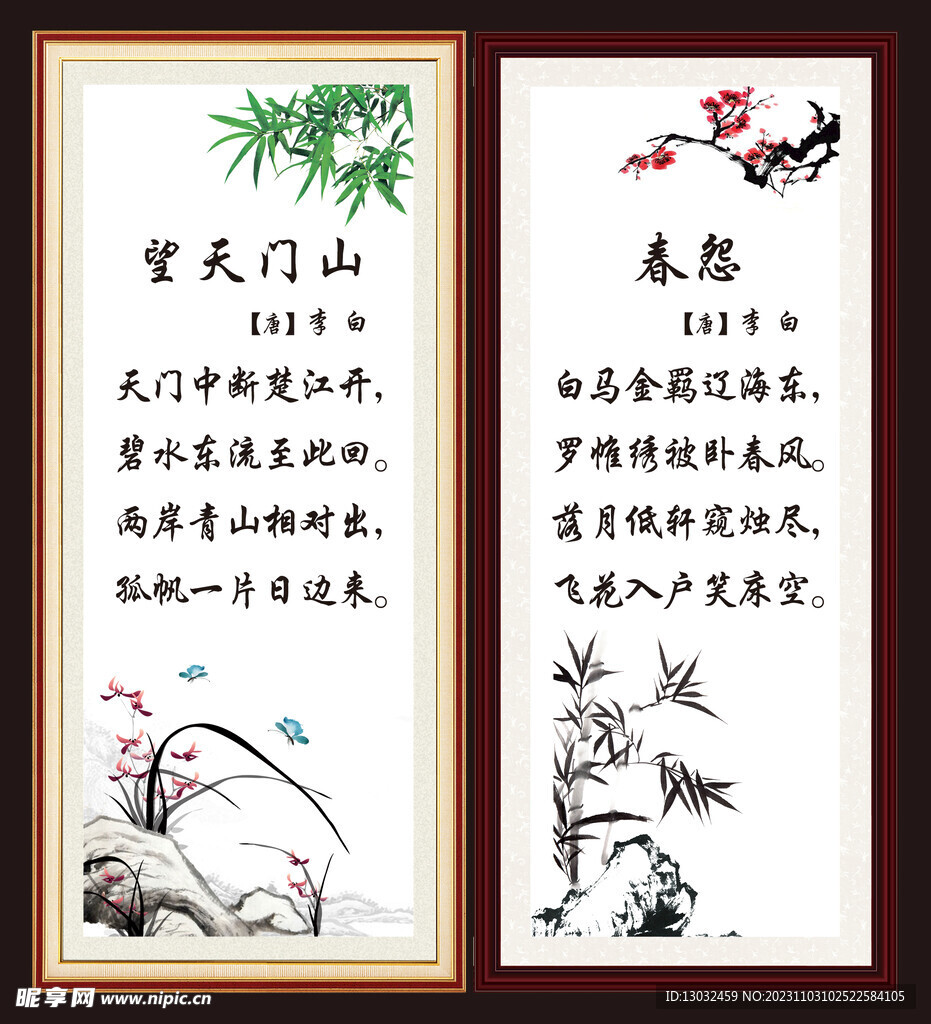 望天门山
【唐】李 白
天门中断楚江开，
碧水东流至此回。
两岸青山相对出，
孤帆一片日边来。
春怨
【唐】李 白
白马金羁辽海东，
罗帷绣被卧春风。
落月低轩窥烛尽，
飞花入户笑床空。
昵享网 www.nipic.cn
ID:13032459 NO:20231103102522584105